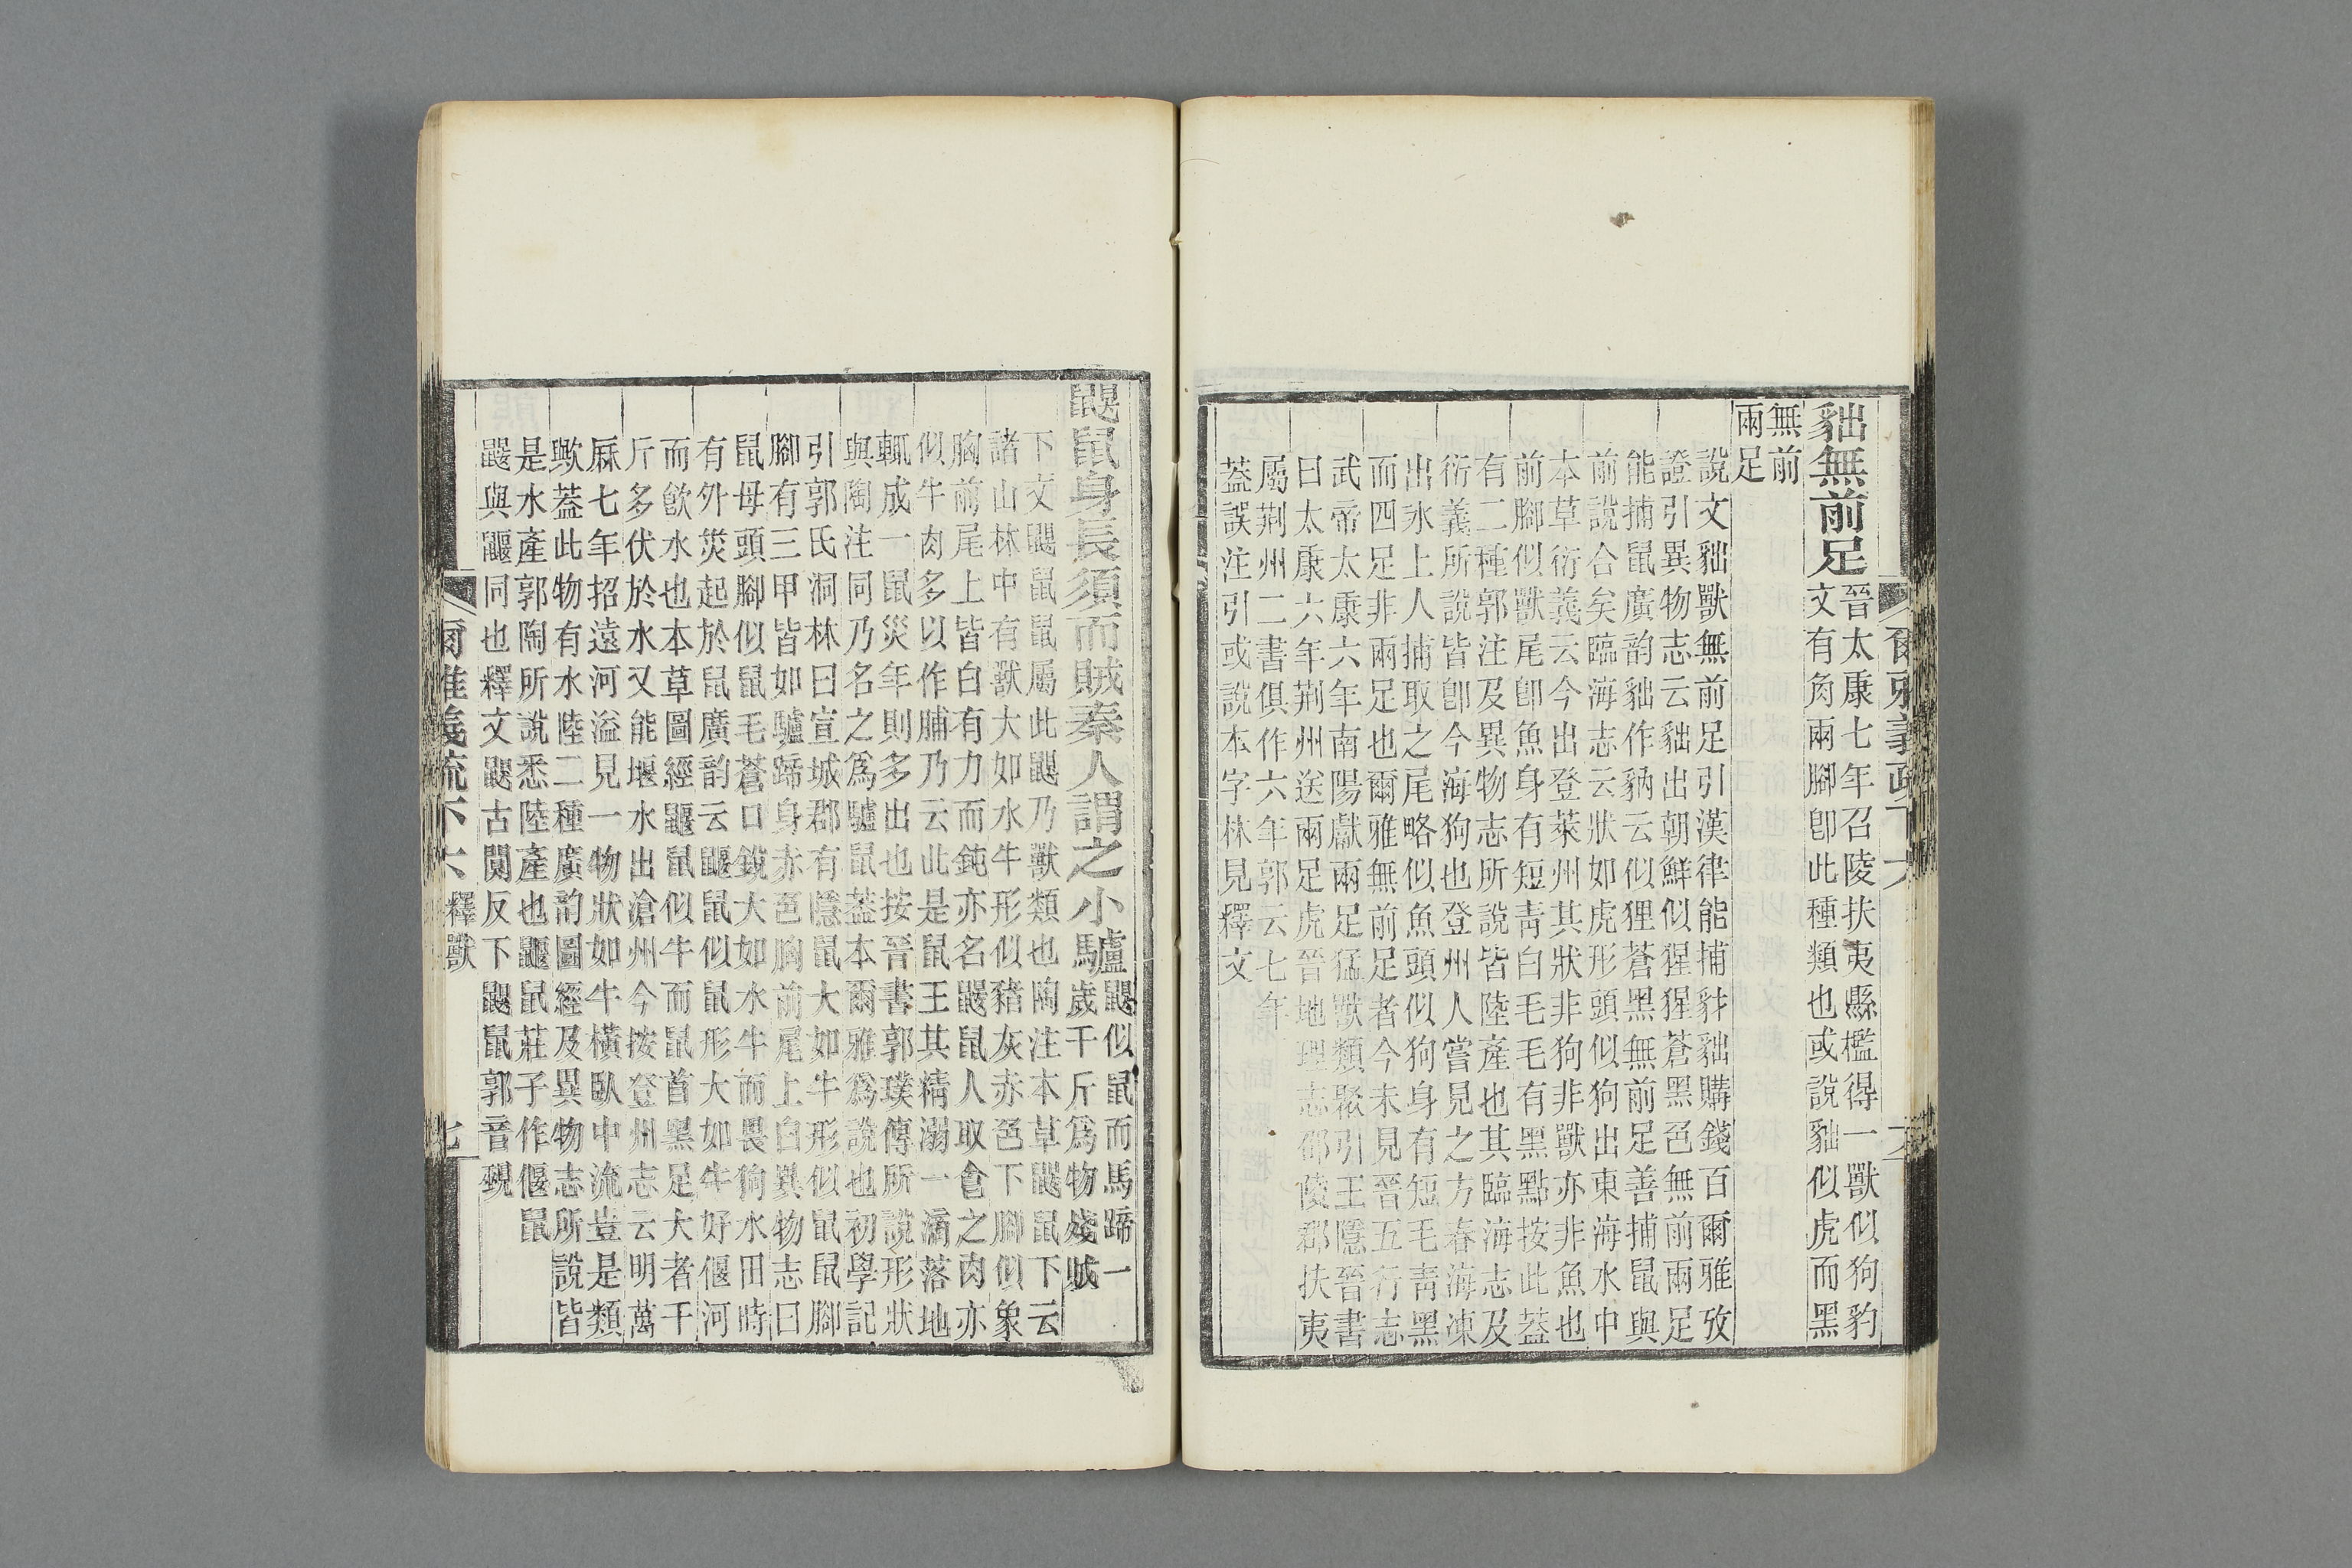 貀無前足
晉太康七年召陵扶夷縣檻得一獸似狗豹
文有角兩腳卽此種類也或說貀似虎而黑
無前
兩足
說文貀獸無前足引漢律能捕豺貀購錢百爾雅攷
證引異物志云貀出朝鮮似猩猩蒼黑色無前兩足
能捕鼠廣韵貀作豽云似狸蒼黑無前足善捕鼠與
前說合矣臨海志云狀如虎形頭似狗出東海水中
本草衍義云今出登萊州其狀非狗非獸亦非魚也
前腳似獸尾卽魚身有短靑白毛毛有黑點按此葢
有二種郭注及異物志所說皆陸產也其臨海志及
衍義所說皆卽今海狗也登州人嘗見之方春海凍
出氷上人捕取之尾略似魚頭似狗身有短毛靑黑
而四足非兩足也爾雅無前足者今未見晉五行志
武帝太康六年南陽獻兩足猛獸類聚引王隱晉書
曰太康六年荆州送兩足虎晉地理志邵陵郡扶夷
屬荆州二書俱作六年郭云七年
葢誤注引或說本字林見釋文
爾雅義疏下六
六
鼳鼠身長須而賊秦人謂之小驢
鼳似鼠而馬蹄一
歲千斤爲物殘賊
下文鼳鼠鼠屬此鼳乃獸類也陶注本草鼴鼠下云
諸山林中有獸大如水牛形似豬灰赤色下腳似象
胸前尾上皆白有力而鈍亦名鼴鼠人取食之肉亦
似牛肉多以作脯乃云此是鼠王其精溺一滴落地
輒成一鼠災年則多出也按晉書郭璞傳所說形狀
與陶注同乃名之爲驢鼠葢本爾雅爲說也初學記
引郭氏洞林曰宣城郡有隱鼠大如牛形似鼠鼠腳
腳有三甲皆如驢蹄身赤色胸前尾上白異物志曰
鼠母頭腳似鼠毛蒼口銳大如水牛而畏狗水田時
有外災起於鼠廣韵云鼴鼠似鼠形大如牛好偃河
而飮水也本草圖經鼴鼠似牛而鼠首黑足大者千
斤多伏於水又能堰水出滄州今按登州志云明萬
厤七年招遠河溢見一物狀如牛橫臥中流豈是類
歟葢此物有水陸二種廣韵圖經及異物志所說皆
是水產郭陶所說悉陸產也鼴鼠莊子作偃鼠
鼴與鼴同也釋文鼳古闃反下鼳鼠郭音覡
爾雅義疏下六 釋獸
七